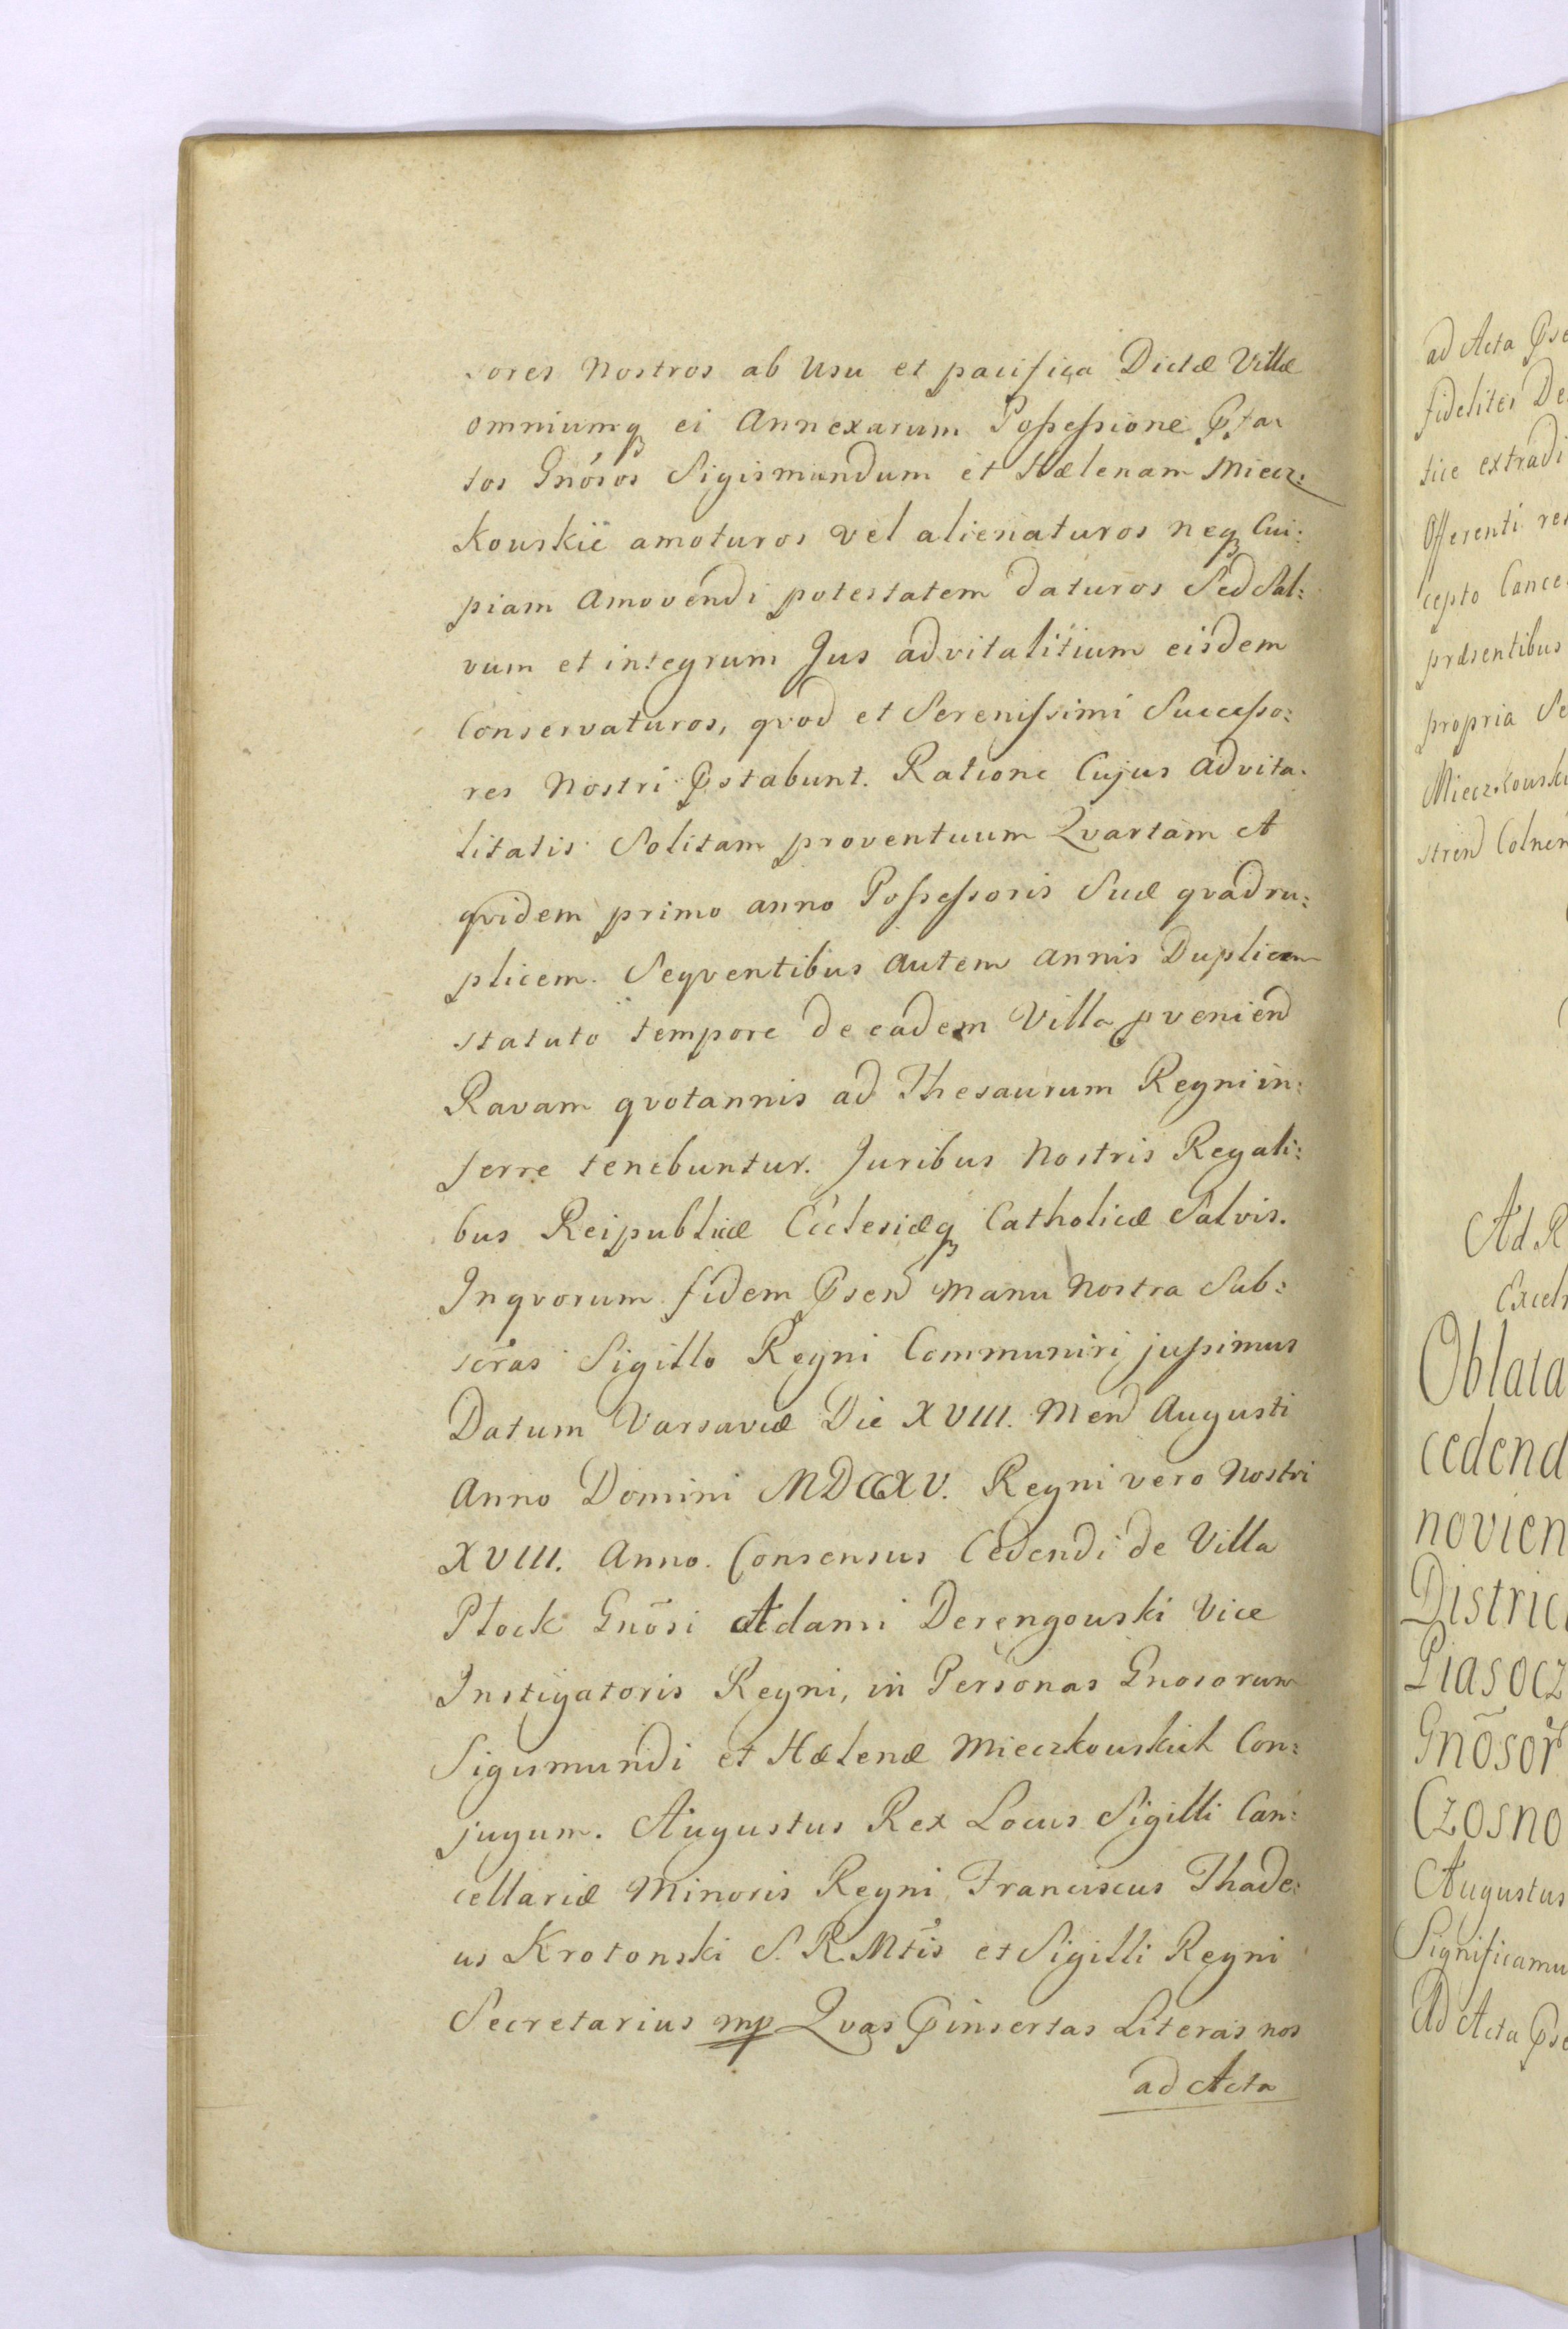 sores Nostros ab Usu et pacifica Dictæ Villæ
omniumq3 ei Annexarum Possessione Pfa-
tos Gnosos Sigismundum et Hælenam Miecz:
kouskie amoturos vel alienaturos neq3 Cui:
piam amovendi potestatem daturos Sed Sal:
vum et integrum Jus advitalitium eisdem
Conservaturos, qvod et Serenissimi Successo:
res Nostri Pstabunt. Ratione Cujus advita-
litatis Solitam proventuum Qvartam et
qvidem primo anno Possessoris Suæ qvadru:
plicem. Seqventibus autem annis Duplicem
statuto tempore de eadem Villa pveniend
Ravam qvotannis ad Thesaurum Regni in:
ferre tenebuntur. Juribus Nostris Regali:
bus Reipublicæ Ecclesiæq3 Catholicæ Salvis.
In qvorum fidem Psend Manu Nostra Sub:
scras Sigillo Regni Communiri jussimus
Datum Varsaviæ Die XVIII. Mend Augusti
Anno Domini MDCCXV. Regni vero Nostri
XVIII. Anno. Consensus Cedendi de Villa
Plock Gnosi Adami Derengouski Vice
Instigatoris Regni, in Personas Gnosorum
Sigismundi et Hælenæ Mieczkouskich Con:
jugum. Augustus Rex Locus Sigilli Can:
cellariæ Minoris Regni Franciscus Thade:
us Krotonski S. R Mtis et Sigilli Regni
Secretarius mp Qvas Pinsertas Literas nos
ad Acta
ad Acta Pse
fideliter De
tice extradi
Offerenti re
cepto Cance
præsentibus
propria Se
Mieczkouski
strend Colnen
Ad R
Excel
Oblata
cedend
novien
Distric
Piasocz
Gnosor
Czosno
Augustus
Significamu
Ad Acta Pse